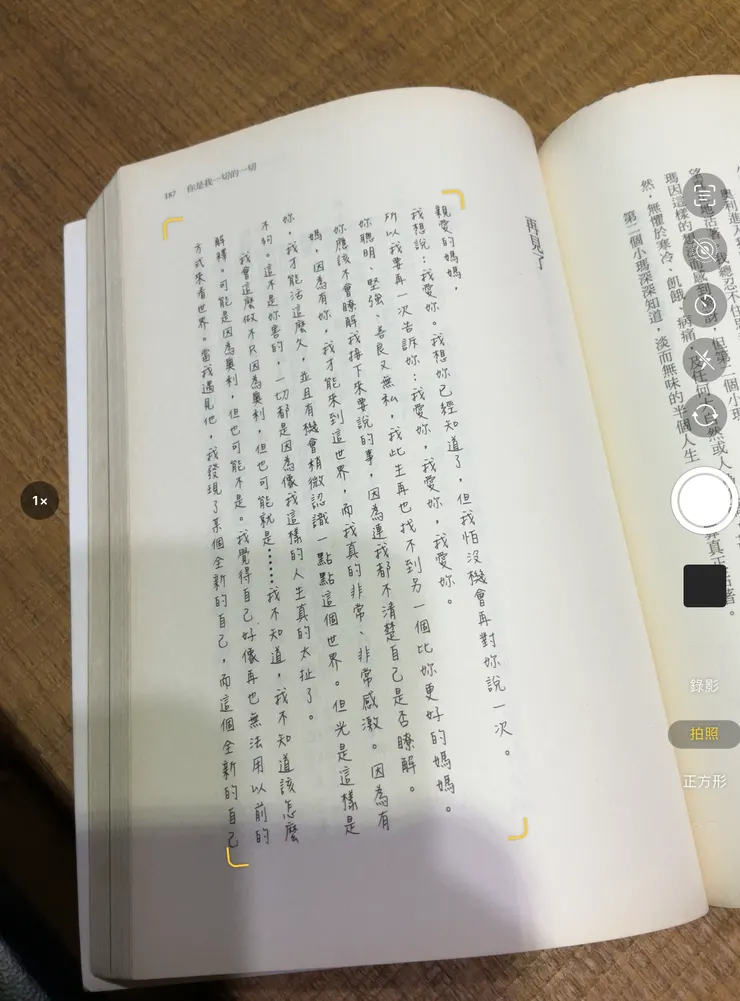 我總忍不住思
但第二個小瑪
然，無懼於寒冷、飢餓、病痛，及任何
第二個小瑪深深知道，淡而無味的半個人生
187 你是我一切的一切
再見了
親愛的媽媽，
我想說：我愛妳。我想妳已經知道了，但我怕沒機會再對妳說一次。
所以我要再一次告訴妳：我愛妳，我愛妳，我愛妳。
妳聰明、堅強、善良又無私，我此生再也找不到另一個比妳更好的媽媽。
妳應該不會瞭解我接下來要說的事，因為連我都不清楚自己是否瞭解。
媽，因為有妳，我才能來到這世界，而我真的非常、非常感激。因為有
妳，我才能活這麼久，並且有機會稍微認識一點點這個世界。但光是這樣是
不夠。這不是妳害的，一切都是因為像我這樣的人生真的太扯了。
我會這麼做不只因為奧利，但也可能就是……我不知道，我不知道該怎麼
解釋。可能是因為奧利，但也可能不是。我覺得自己好像再也無法用以前的
方式來看世界。當我遇見他，我發現了某個全新的自己，而這個全新的自己
1×
錄影
拍照
正方形